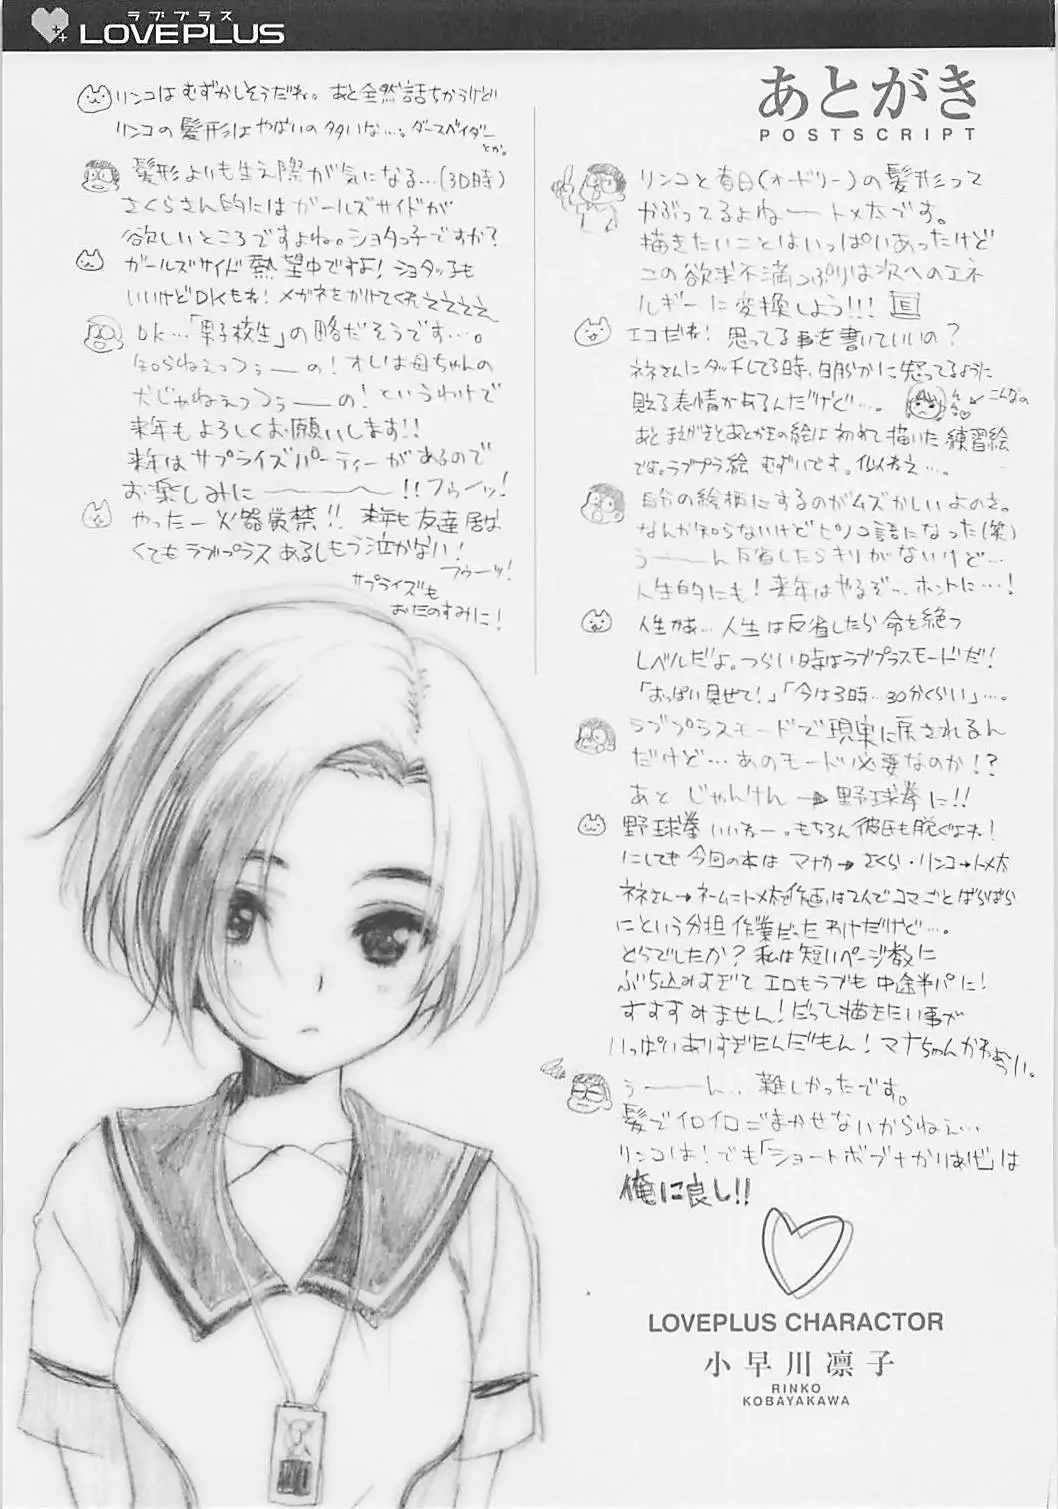 ラブプラス
LOVEPLUS
あとがき
POSTSCRIPT
リンコと春日(オードリー)の髪形って
かぶってるよねートメ太です。
描きたいことはいっぱいあったけど
この欲求不満っぷりは次へのエネ
ルギーに変換しよう!!!
エコだね! 思ってる事を書いていいの?
ネネさんにタッチしてる時、明らかに怒ってるように
見える表情があるんだけど…。
こんなの
あとまえがきとあとがきの絵は初めて描いた練習絵
です。ラブプラ絵 むずいです。似ねえ…。
自分の絵柄にするのがムズかしいよのさ。
なんか知らないけどピノコ語になった(笑)
うーーん反省したらキリがないけど…
人生的にも!来年はやるぞ…ホントに…!
人生かぁ… 人生は反省したら命を絶つ
レベルだよ。つらい時はラブプラスモードだ!
「おっぱい見せて!」「今は3時…30分くらい」…。
ラブプラスモードで現実に戻されるん
だけど…あのモード必要なのか!?
あと じゃんけん→野球拳に!!
野球拳いいねー。もちろん彼氏も脱ぐよね!
にしても今回の本は マナカ→さくら・リンコ→トメ太
ネネさん→ネームにトメ太で作画は2人でコマごとばらばら
にという分担作業だったわけだけど…。
どうでしたか? 私は短いページ数に
ぶち込みすぎて エロもラブも中途半パに!
すすすみません!だって描きたい事が
いっぱいありすぎたんだもん!マナちゃんかわぁうい。
うーーん… 難しかったです。
髪でイロイロごまかせないからねぇ…
リンコは!でも「ショートボブナかりあげ」は
俺に良し!!
LOVEPLUS CHARACTOR
小早川凛子
RINKO
KOBAYAKAWA
リンコはむずかしそうだね。あと全然話ちがうけど
リンコの髪形はやばいの多いな…。ダースベイダー
とか。
髪形よりも生え際が気になる…(30時)
さくらさん的にはガールズサイドが
欲しいところですよね。ショタっ子ですか?
ガールズサイド熱望中ですよ! ショタっ子も
いいけどDKもね! メガネをかけてくれえええええ
DK…「男子校生」の略だそうです…。
知らねえっつぅーの!オレは母ちゃんの
犬じゃねえっつぅーの!というわけで
来年もよろしくお願いします!!
来年はサプライズパーティーがあるので
お楽しみにーーーー!!フゥーッ!
やったー火器厳禁!! 来年も友達居な
くてもラブプラスあるしもう泣かない!
フゥーッ!
サプライズも
おたのすみに!